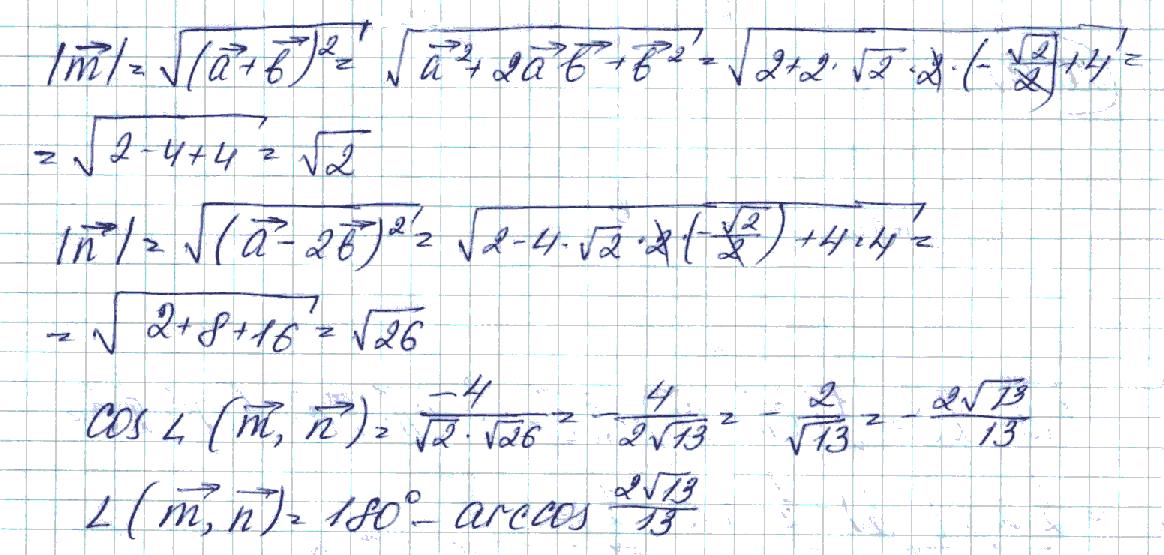 |m⃗| = √((a⃗+b⃗)²) = √(a⃗²+2a⃗b⃗+b⃗²) = √(2+2·√2·2·(-√2/2)+4) =
= √(2-4+4) = √2
|n⃗| = √((a⃗-2b⃗)²) = √(2-4·√2·2·(-√2/2)+4·4) =
= √(2+8+16) = √26
cos ∠(m⃗, n⃗) = -4/(√2·√26) = -4/(2√13) = -2/√13 = -2√13/13
∠(m⃗, n⃗) = 180° - arccos 2√13/13